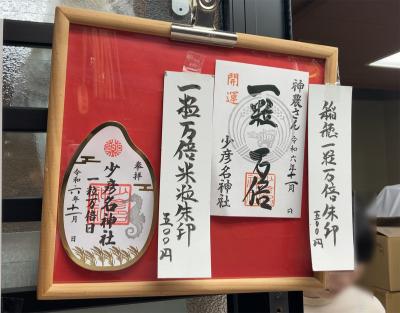 稲穂一粒万倍朱印
五〇〇円
開運
神農さん
令和六年十一月 日
一粒万倍
少彦名神社
一粒万倍米粒朱印
五〇〇円
奉拝
少彦名神社
一粒万倍日
令和六年十一月 日